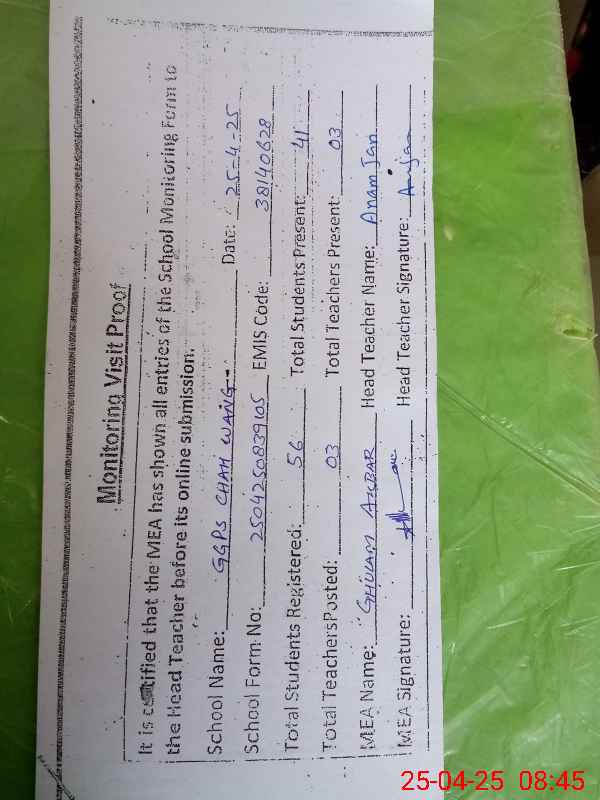 Monitoring Visit Proof
It is certified that the MEA has shown all entries of the School Monitoring Form to
the Head Teacher before its online submission.
School Name: GGPS CHAH WANG Date: 25-4-25
School Form No: 2504250839105 EMIS Code: 38140628
Total Students Registered: 56 Total Students Present: 41
Total TeachersPosted: 03 Total Teachers Present: 03
MEA Name: GHULAM AKBAR Head Teacher Name: Anam Jan
MEA Signature: Head Teacher Signature: Anjan
25-04-25 08:45